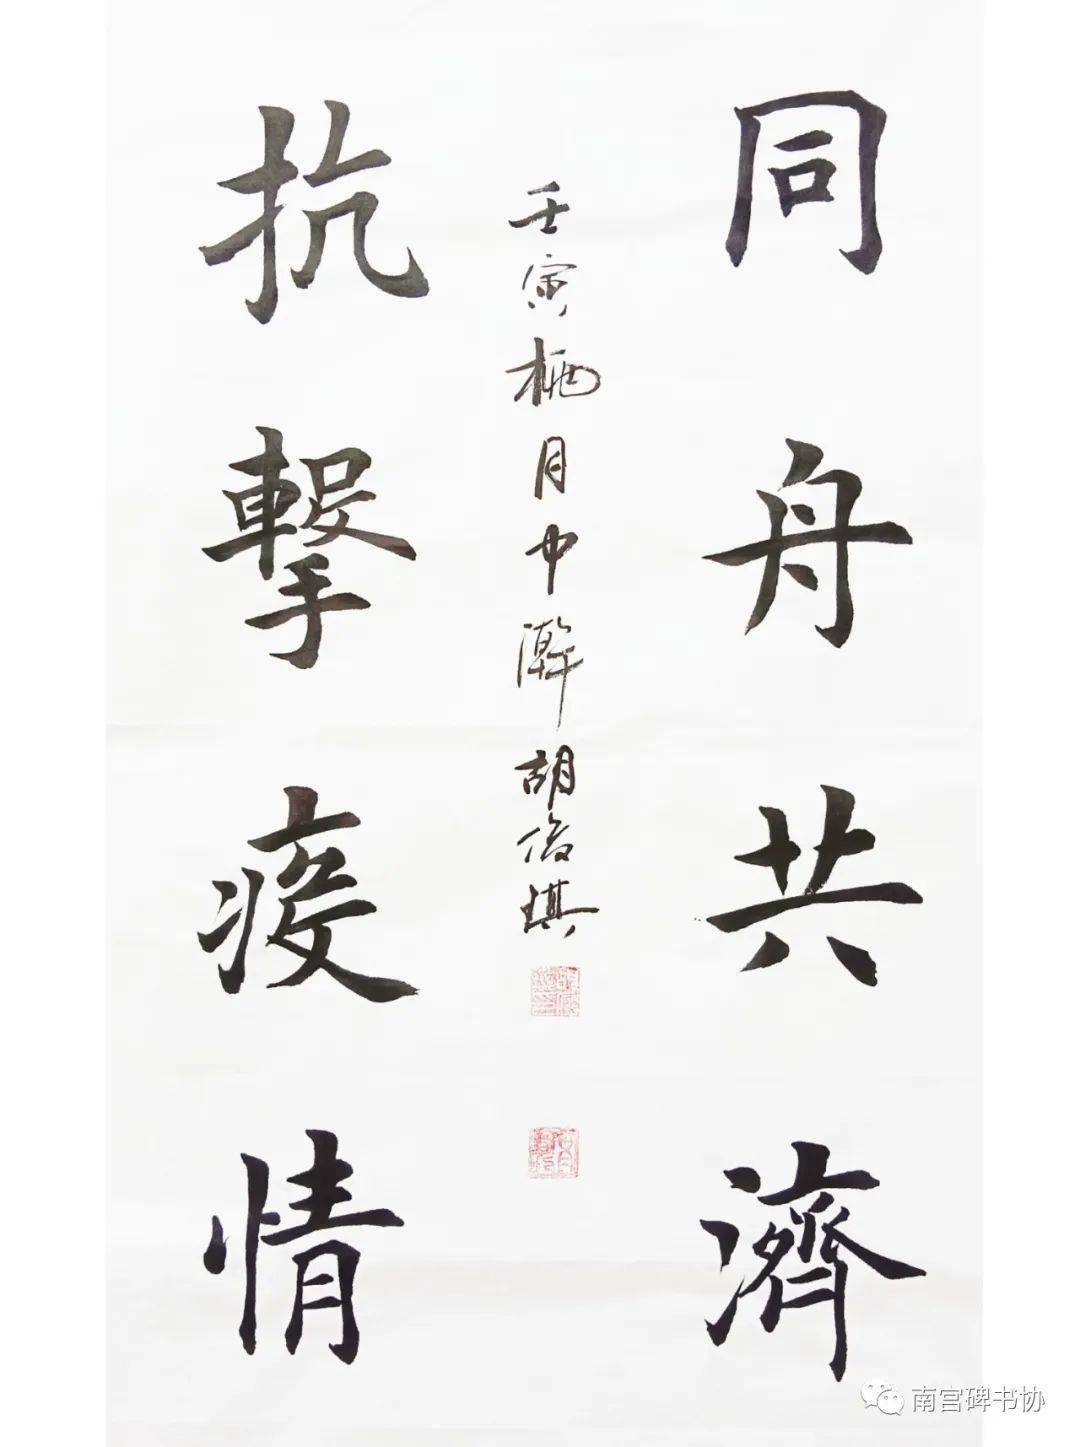 同舟共濟
抗擊疫情
壬寅月中澣胡俊琪
南宫碑书协